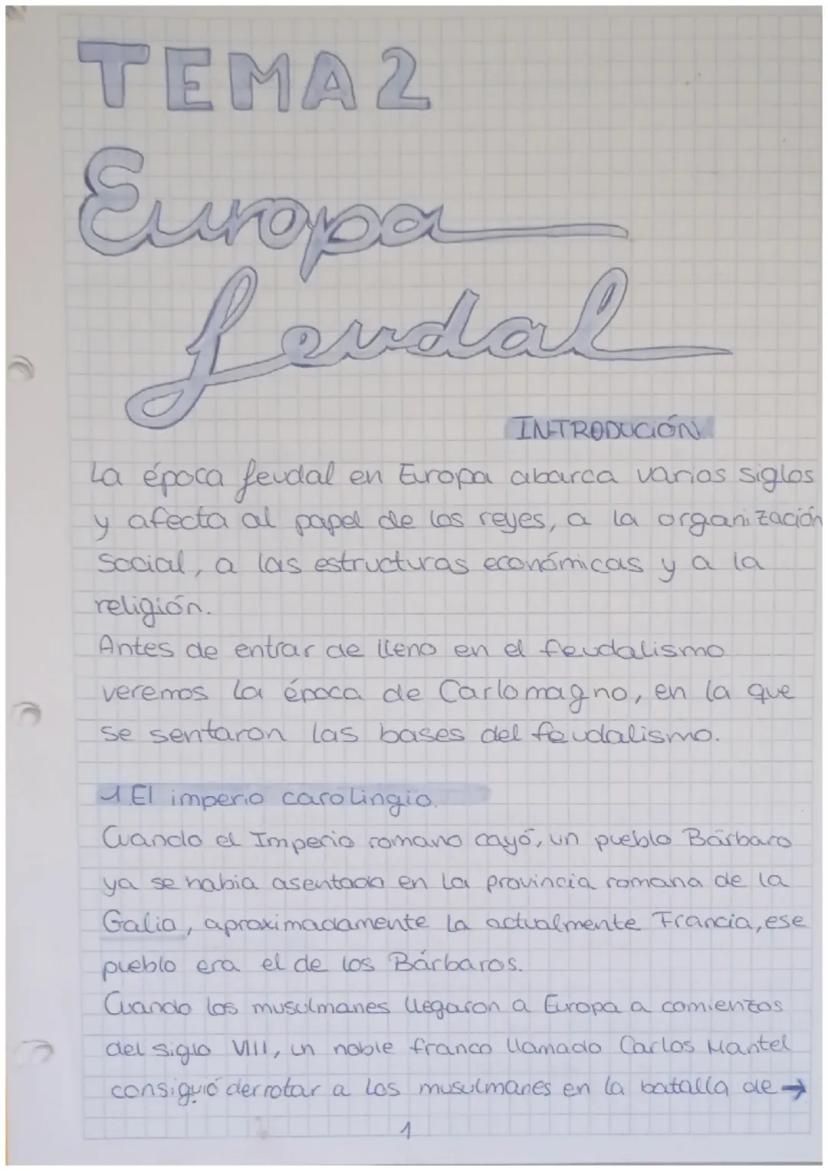 TEMA 2
Europa
feudal
INTRODUCIÓN
La época feudal en Europa abarca varios siglos
y afecta al papel de los reyes, a la organización
social, a las estructuras económicas y a la
religión.
Antes de entrar de lleno en el feudalismo
veremos la época de Carlomagno, en la que
se sentaron las bases del feudalismo.
1 El imperio carolingio.
Cuando el Imperio romano cayó, un pueblo Bárbaro
ya se habia asentado en la provincia romana de la
Galia, aproximadamente la actualmente Francia, ese
pueblo era el de los Bárbaros.
Cuando los musulmanes llegaron a Europa a comienzos
del siglo VIII, un noble franco llamado Carlos Mantel
consiguió derrotar a los musulmanes en la batalla de →
1